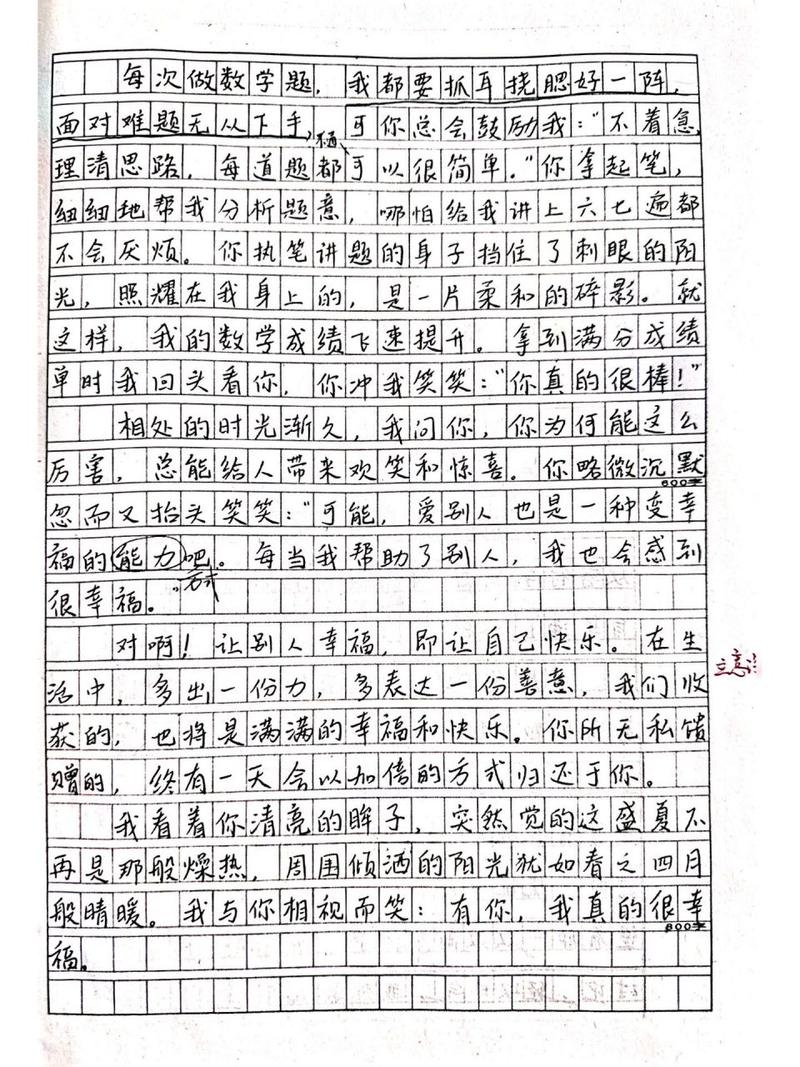 每次做数学题，我都要抓耳挠腮好一阵，
面对难题无从下手，可你总会鼓励我：“不着急，
理清思路，每道题都可以很简单。”你拿起笔，
细细地帮我分析题意，哪怕给我讲上六七遍都
不会厌烦。你执笔讲题的身子挡住了刺眼的阳
光，照耀在我身上的，是一片柔和的碎影。就
这样，我的数学成绩飞速提升。拿到满分成绩
单时我回头看你，你冲我笑笑：“你真的很棒！”
相处的时光渐久，我问你，你为何能这么
厉害，总能给人带来欢笑和惊喜。你略微沉默
600字
忽而又抬头笑笑：“可能，爱别人也是一种变幸
福的能力吧。每当我帮助了别人，我也会感到
方式
很幸福。”
对啊！让别人幸福，即让自己快乐。在生
活中，多出一份力，多表达一份善意，我们收
立意
获的，也将是满满的幸福和快乐。你所无私馈
赠的，终有一天会以加倍的方式归还于你。
我看着你清亮的眸子，突然觉的这盛夏不
再是那般燥热，周围倾洒的阳光犹如春之四月
般晴暖。我与你相视而笑：有你，我真的很幸
800字
福。